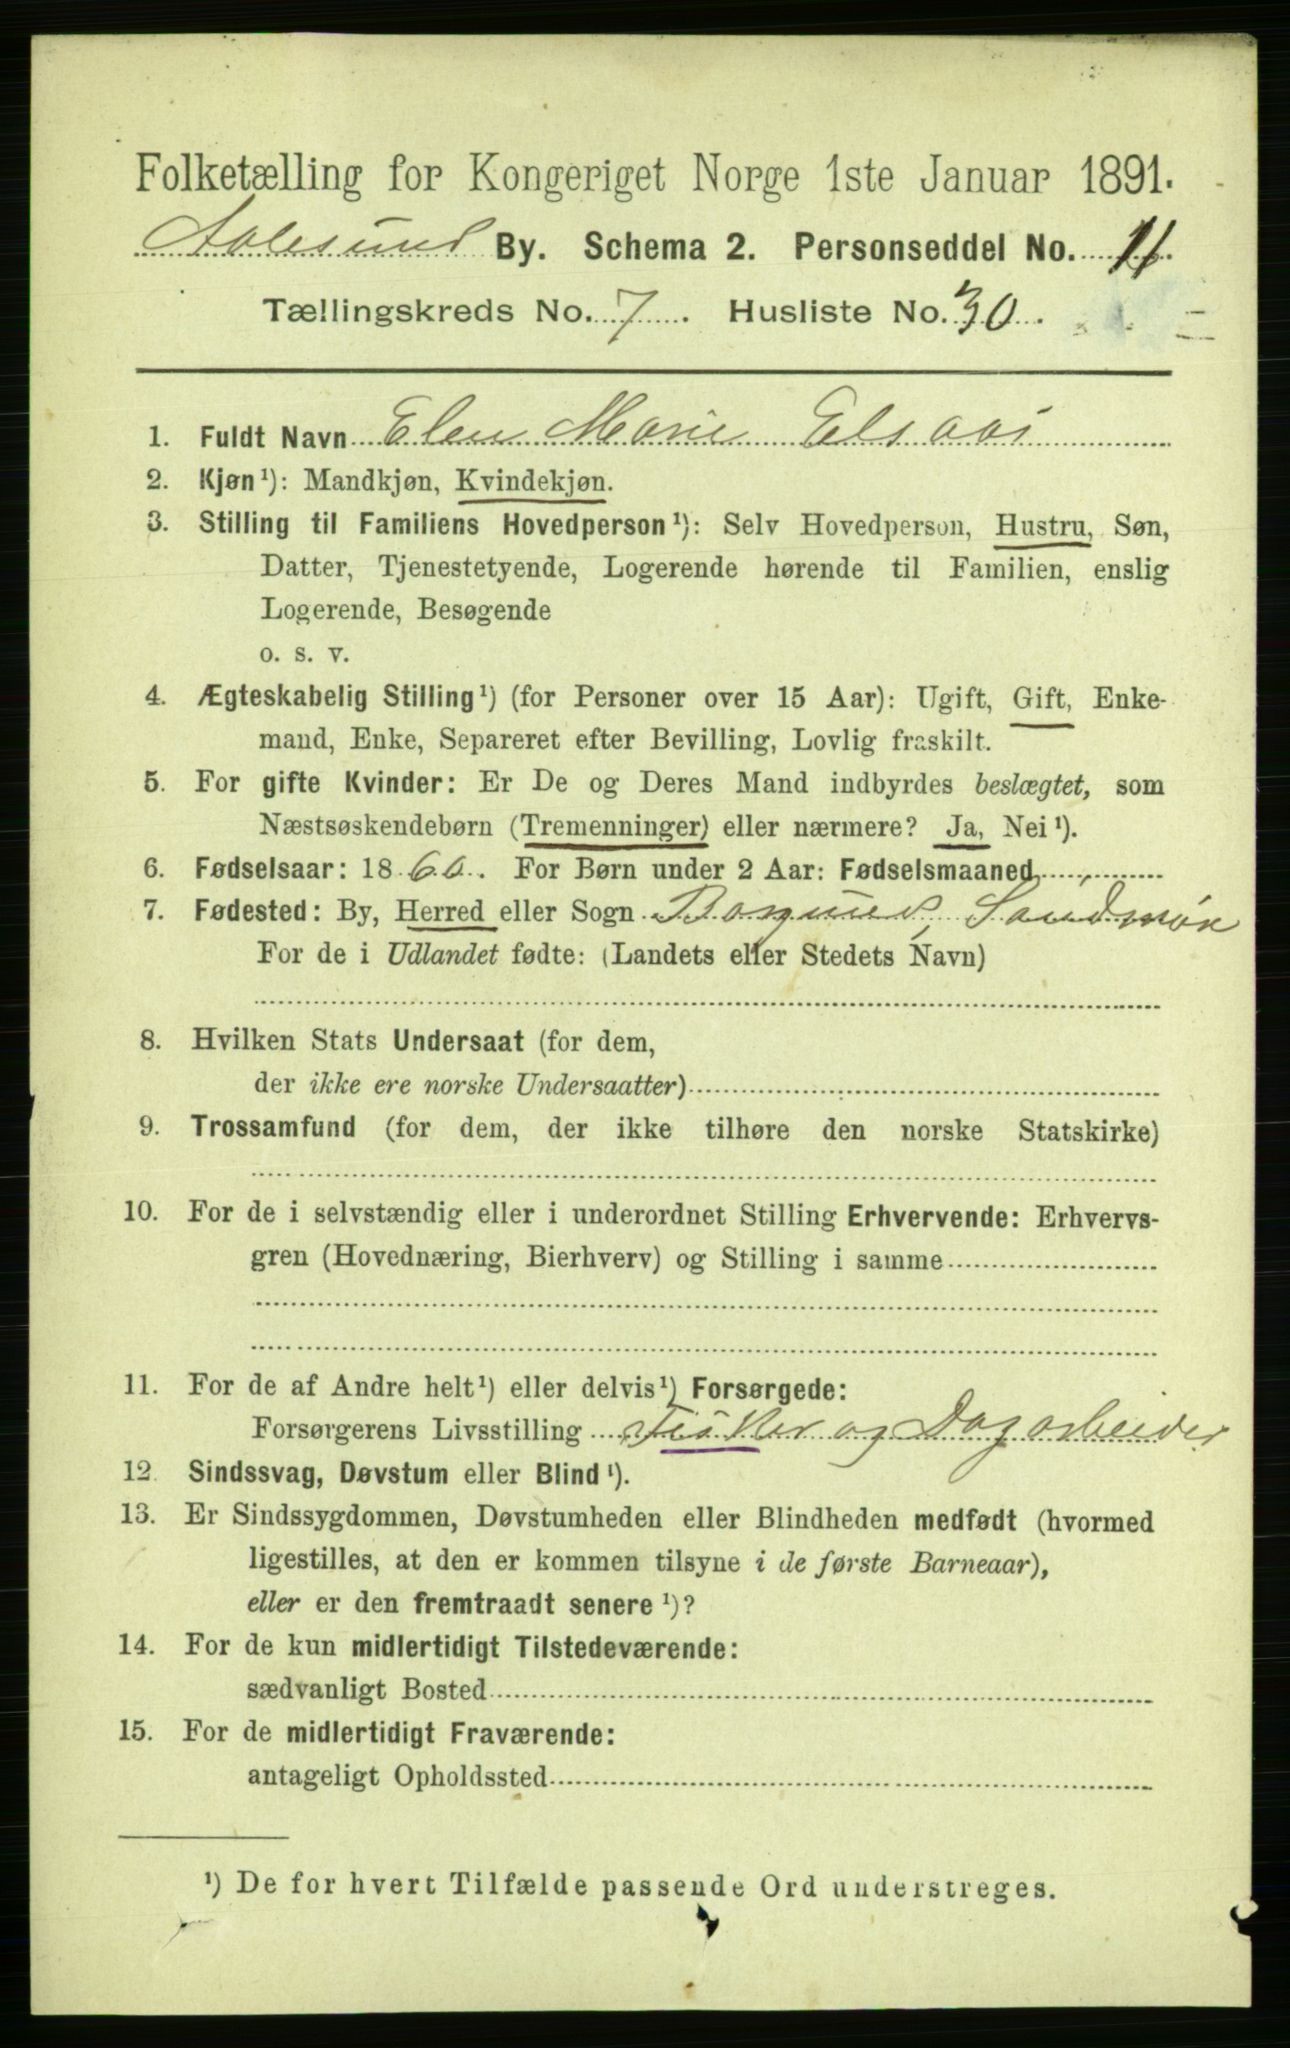 Folketælling for Kongeriget Norge 1ste Januar 1891.
Aalesund By. Schema 2. Personseddel No. 11.
Tællingskreds No. 7. Husliste No. 30.
1. Fuldt Navn Elen Marie Elsaas
2. Kjøn ¹): Mandkjøn, Kvindekjøn.
3. Stilling til Familiens Hovedperson ¹): Selv Hovedperson, Hustru, Søn,
Datter, Tjenestetyende, Logerende hørende til Familien, enslig
Logerende, Besøgende
o. s. v.
4. Ægteskabelig Stilling ¹) (for Personer over 15 Aar): Ugift, Gift, Enke-
mand, Enke, Separeret efter Bevilling, Lovlig fraskilt.
5. For gifte Kvinder: Er De og Deres Mand indbyrdes beslægtet, som
Næstsøskendebørn (Tremenninger) eller nærmere? Ja, Nei ¹).
6. Fødselsaar: 1860. For Børn under 2 Aar: Fødselsmaaned
7. Fødested: By, Herred eller Sogn Borgund, Søndmør
For de i Udlandet fødte: (Landets eller Stedets Navn)
8. Hvilken Stats Undersaat (for dem,
der ikke ere norske Undersaatter)
9. Trossamfund (for dem, der ikke tilhøre den norske Statskirke)
10. For de i selvstændig eller i underordnet Stilling Erhvervende: Erhvervs-
gren (Hovednæring, Bierhverv) og Stilling i samme
11. For de af Andre helt ¹) eller delvis ¹) Forsørgede:
Forsørgerens Livsstilling Fisker og Dagarbeider
12. Sindssvag, Døvstum eller Blind ¹).
13. Er Sindssygdommen, Døvstumheden eller Blindheden medfødt (hvormed
ligestilles, at den er kommen tilsyne i de første Barneaar),
eller er den fremtraadt senere ¹)?
14. For de kun midlertidigt Tilstedeværende:
sædvanligt Bosted
15. For de midlertidigt Fraværende:
antageligt Opholdssted
¹) De for hvert Tilfælde passende Ord understreges.